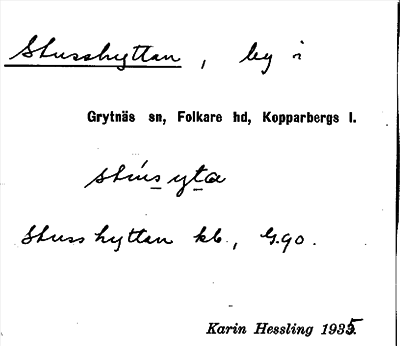 Stusshyttan, by i
Grytnäs sn, Folkare hd, Kopparbergs l.
Stusshyttan kb.,
Karin Hessling 1935.